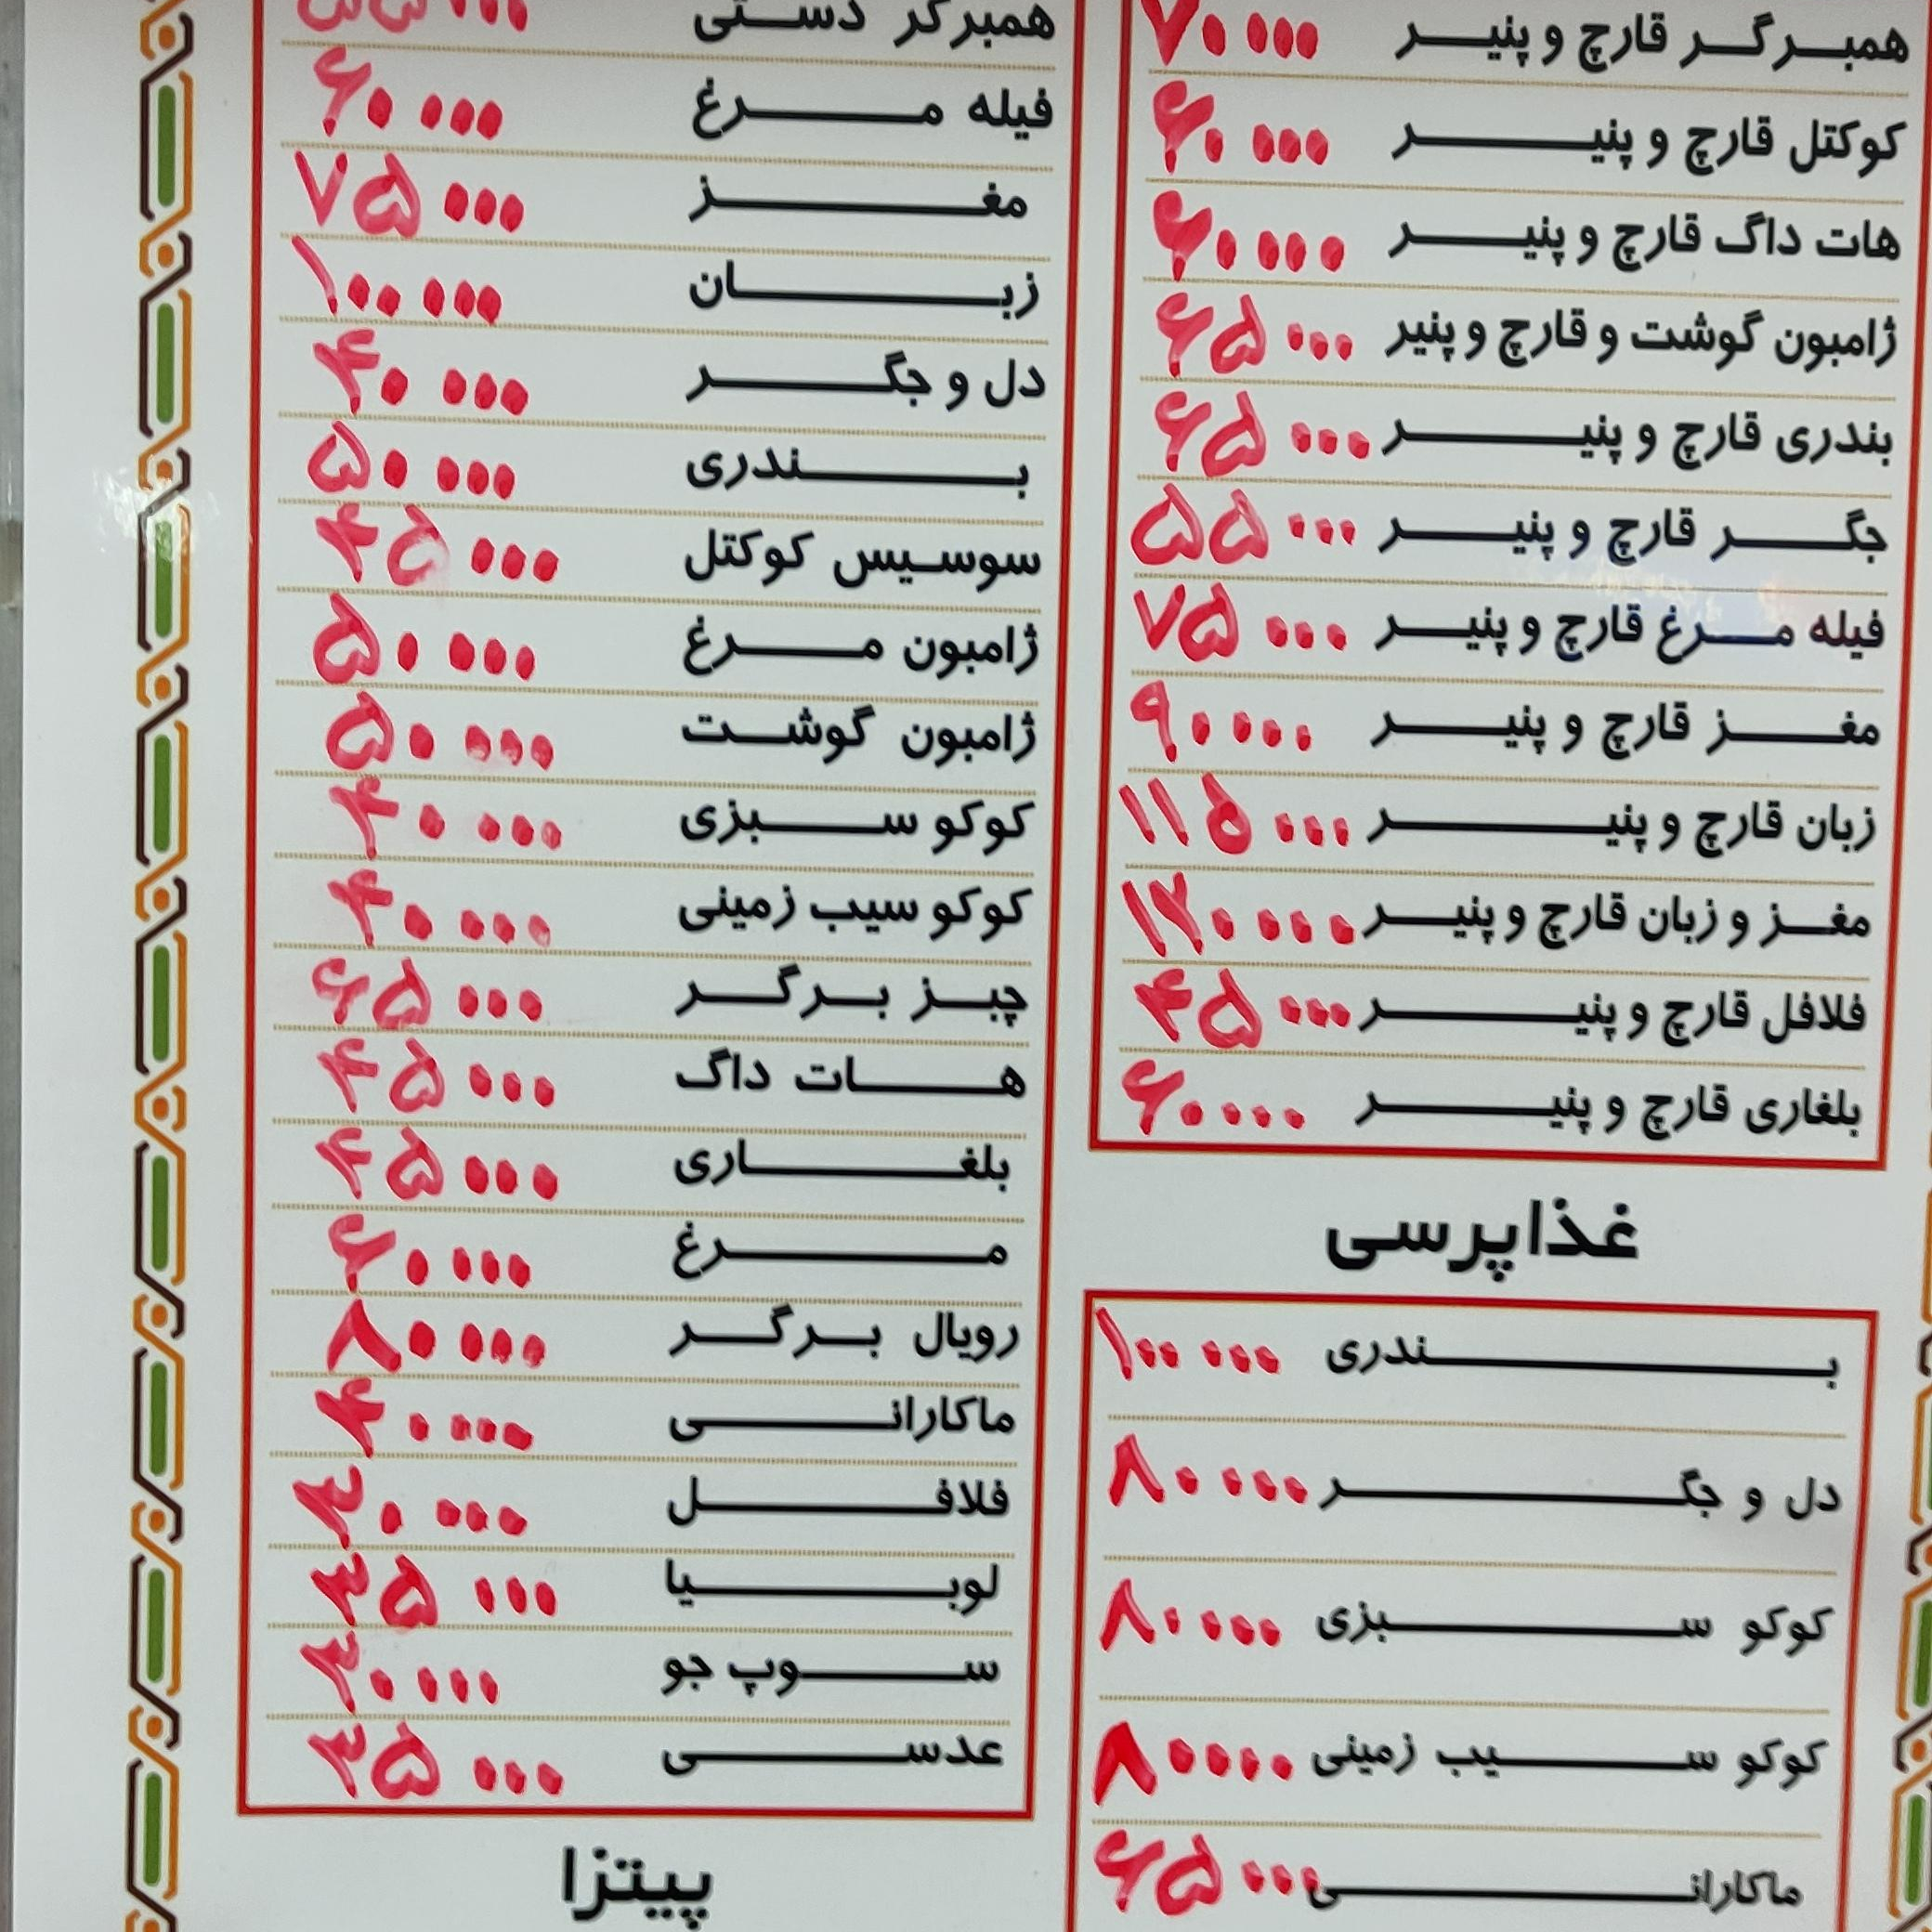 همبرگر قارچ و پنیر ۷۰۰۰۰
کوکتل قارچ و پنیر ۶۰۰۰۰
هات داگ قارچ و پنیر ۶۰۰۰۰
ژامبون گوشت و قارچ و پنیر ۶۵۰۰۰
بندری قارچ و پنیر ۶۵۰۰۰
جگر قارچ و پنیر ۵۵۰۰۰
فیله مرغ قارچ و پنیر ۷۵۰۰۰
مغز قارچ و پنیر ۹۰۰۰۰
زبان قارچ و پنیر ۱۱۵۰۰۰
مغز و زبان قارچ و پنیر ۱۲۰۰۰۰
فلافل قارچ و پنیر ۴۵۰۰۰
بلغاری قارچ و پنیر ۶۰۰۰۰
غذاپرسی
بندری ۱۰۰۰۰۰
دل و جگر ۸۰۰۰۰
کوکو سبزی ۸۰۰۰۰
کوکو سیب زمینی ۸۰۰۰۰
ماکارانی ۶۵۰۰۰
همبرگر دستی ۵۵۰۰۰
فیله مرغ ۶۰۰۰۰
مغز ۷۵۰۰۰
زبان ۱۰۰۰۰۰
دل و جگر ۴۰۰۰۰
بندری ۵۰۰۰۰
سوسیس کوکتل ۴۵۰۰۰
ژامبون مرغ ۵۰۰۰۰
ژامبون گوشت ۵۰۰۰۰
کوکو سبزی ۴۰۰۰۰
کوکو سیب زمینی ۴۰۰۰۰
چیز برگر ۶۵۰۰۰
هات داگ ۴۵۰۰۰
بلغاری ۴۵۰۰۰
مرغ ۶۰۰۰۰
رویال برگر ۸۰۰۰۰
ماکارانی ۴۰۰۰۰
فلافل ۳۰۰۰۰
لوبیا ۳۵۰۰۰
سوپ جو ۳۰۰۰۰
عدسی ۳۵۰۰۰
پیتزا